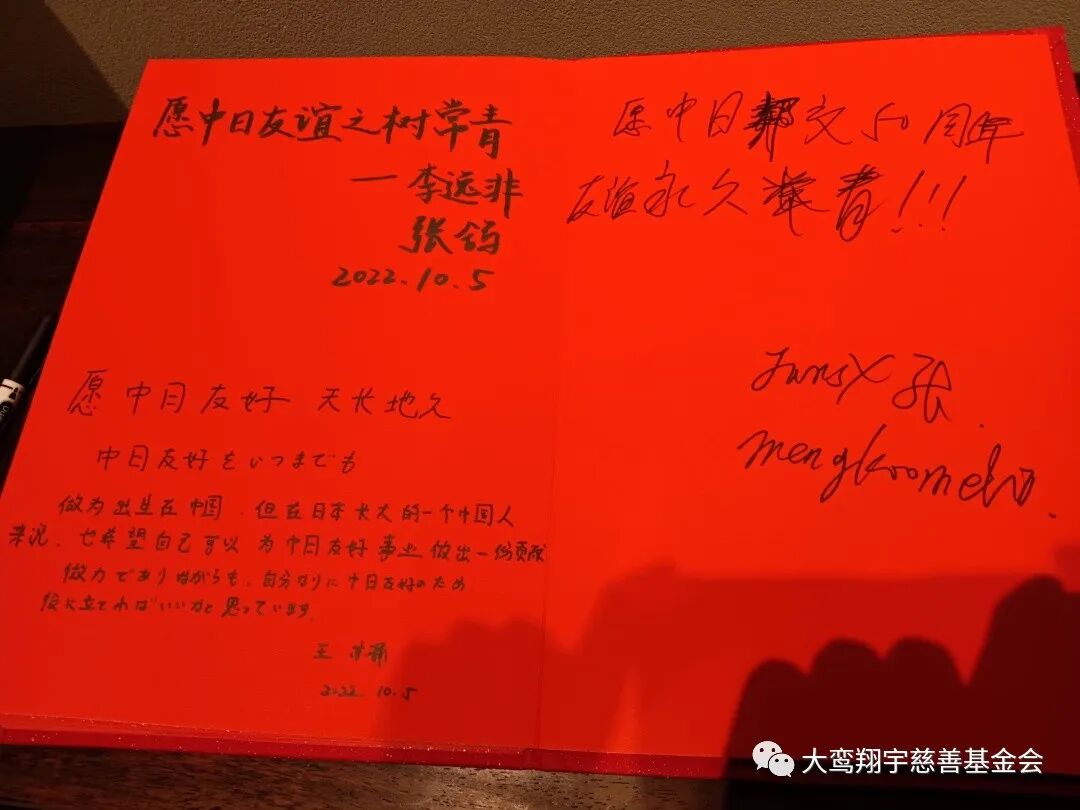 愿中日友谊之树常青
一李远非
张钨
2022.10.5
愿 中日友好 天长地久
中日友好をいつまでも
做为出生在中国.但在日本长大的一个中国人
来说.也希望自己可以为中日友好事业做出一份贡献
微力でありながらも、自分なりに中日友好のため
役に立てればいいかと思っています。
王
2022 10.5
愿中日邦交50周年
友谊永久常青!!!
张
大鸾翔宇慈善基金会